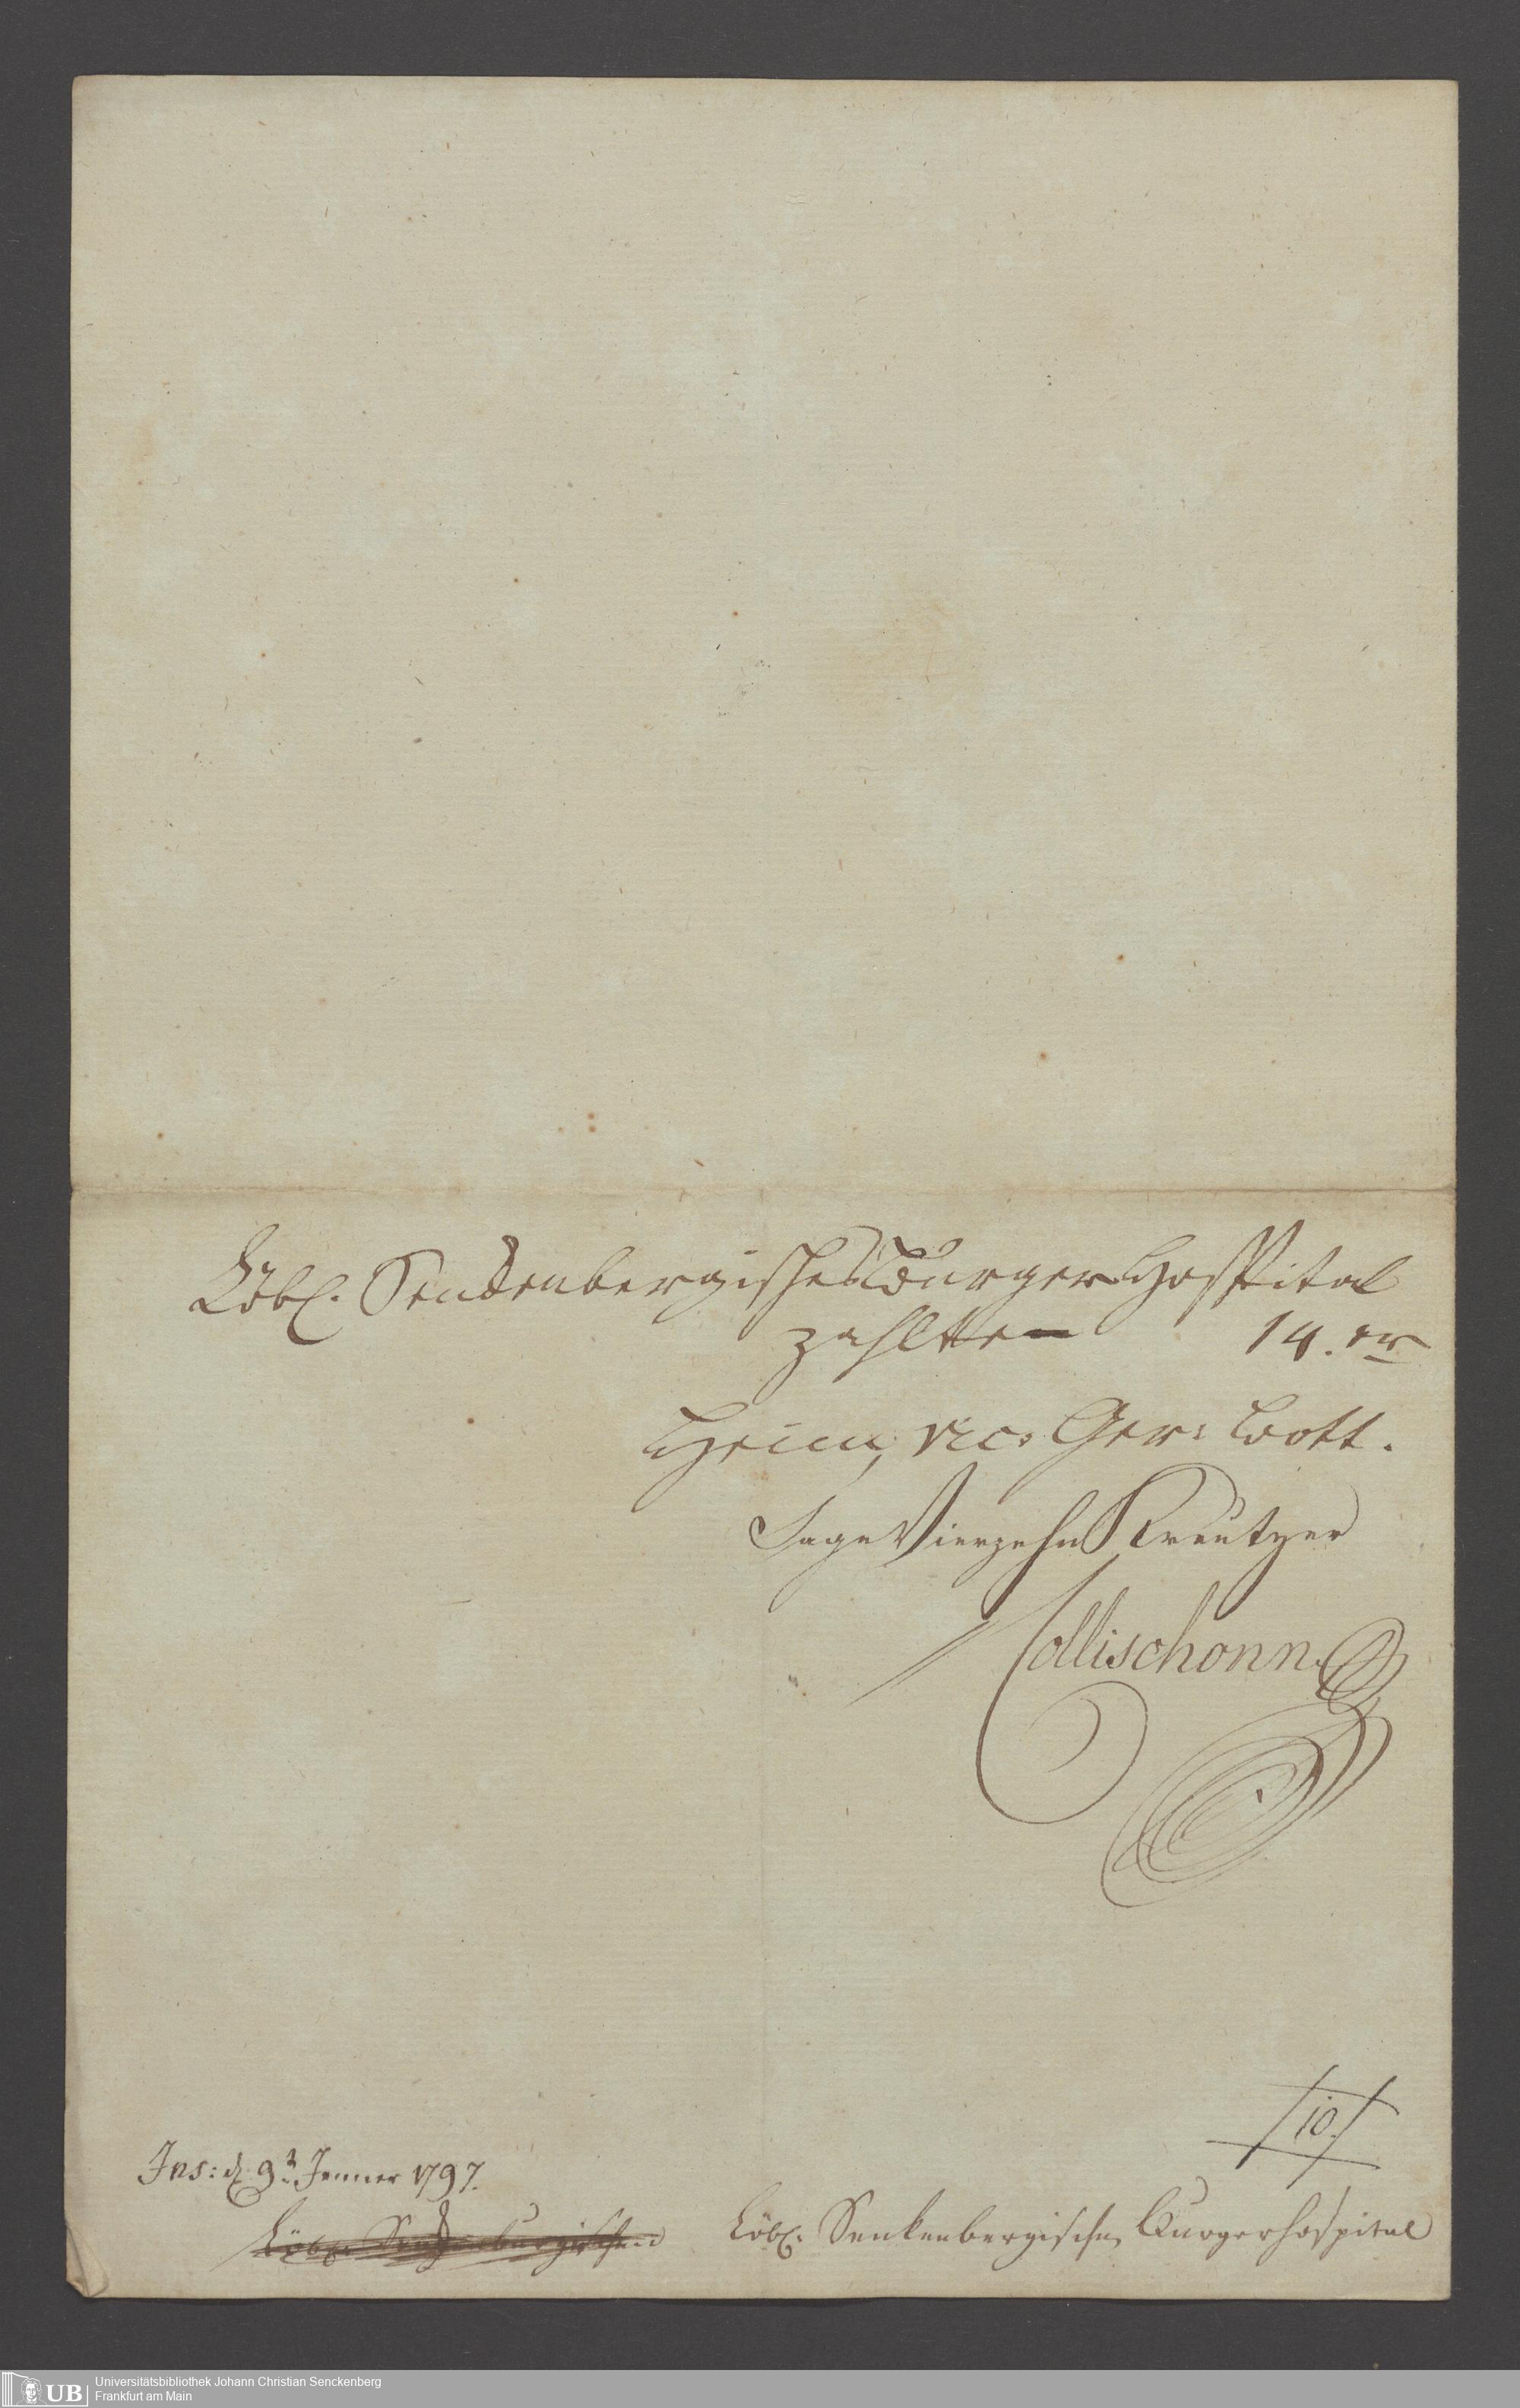 Löbl. Senckenbergisches Burger Hospital
zahlte 14. xr
Heim, vic. Ger: Bott.
Sage Vierzehn Kreutzer
Collischonn
10.
Ins: d. 9t Jenner 1797.
Löbl. Senkenbergische Burgerhospital
Universitätsbibliothek Johann Christian Senckenberg
UB Frankfurt am Main